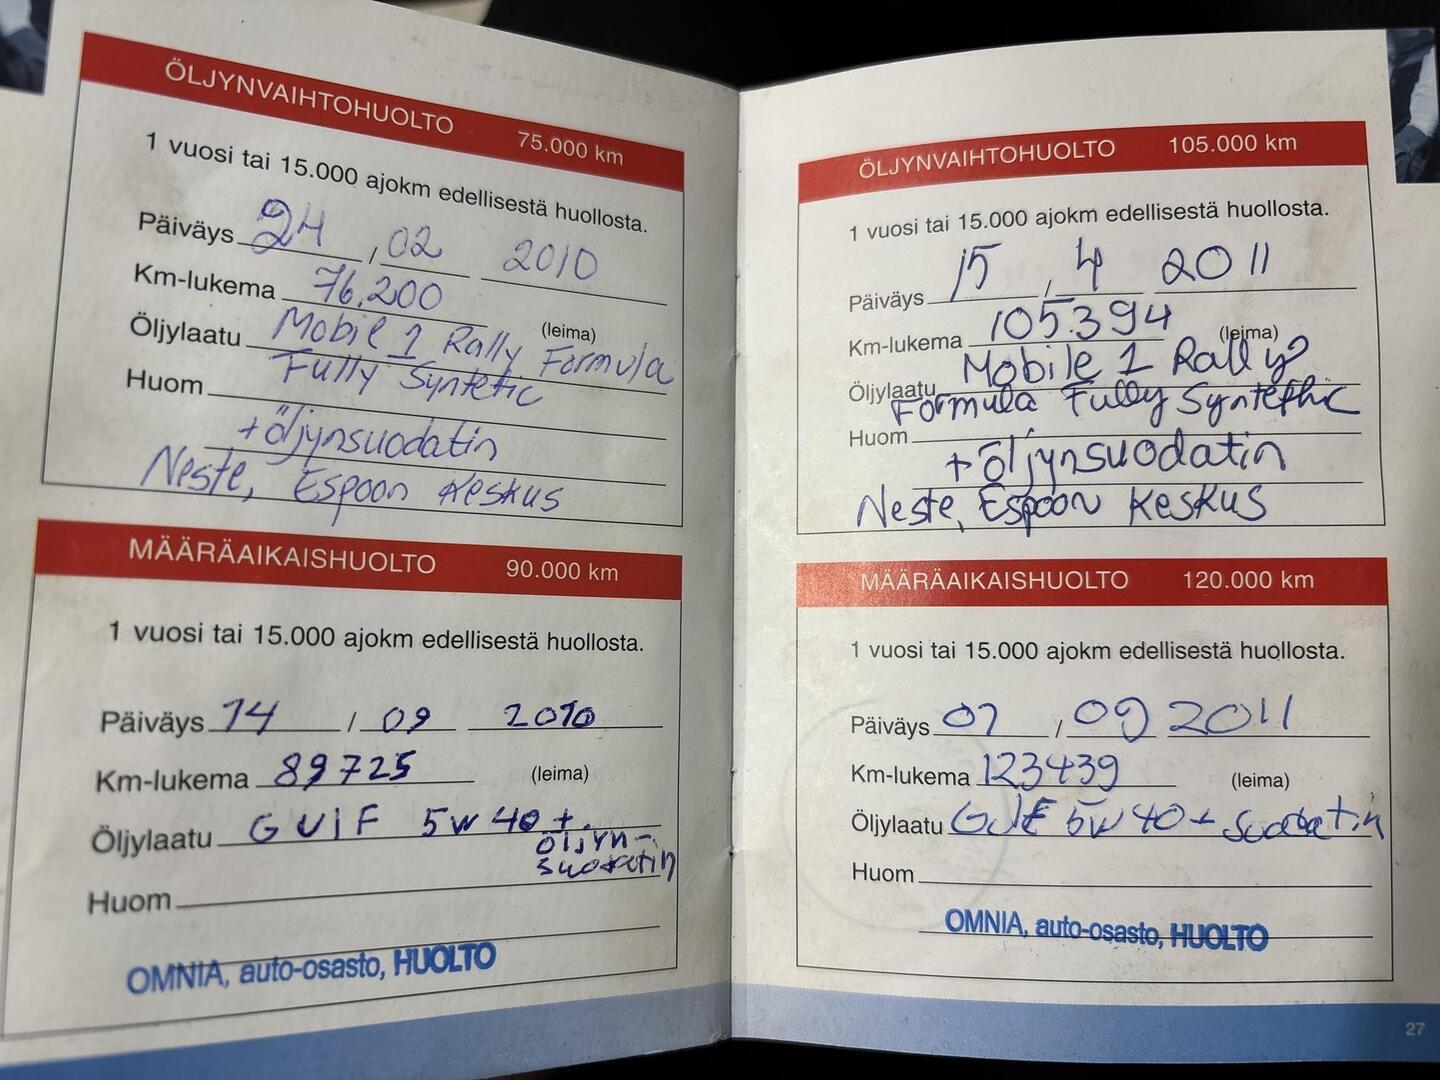 ÖLJYNVAIHTOHUOLTO 75.000 km
1 vuosi tai 15.000 ajokm edellisestä huollosta.
Päiväys 24 , 02 2010
Km-lukema 76.200
(leima)
Öljylaatu Mobil 1 Rally Formula
Fully Syntetic
Huom
+ öljynsuodatin
Neste, Espoon Keskus
MÄÄRÄAIKAISHUOLTO 90.000 km
1 vuosi tai 15.000 ajokm edellisestä huollosta.
Päiväys 14 / 09 2010
Km-lukema 89725 (leima)
Öljylaatu GUlF 5W40 +
öljyn-
suodatin
Huom
OMNIA, auto-osasto, HUOLTO
ÖLJYNVAIHTOHUOLTO 105.000 km
1 vuosi tai 15.000 ajokm edellisestä huollosta.
Päiväys 15 / 4 2011
Km-lukema 105.394 (leima)
Öljylaatu Mobile 1 Rally
Formula Fully Syntethic
Huom
+ öljynsuodatin
Neste, Espoon Keskus
MÄÄRÄAIKAISHUOLTO 120.000 km
1 vuosi tai 15.000 ajokm edellisestä huollosta.
Päiväys 07 / 09 2011
Km-lukema 123439 (leima)
Öljylaatu Gulf 5W40 + suodatin
Huom
OMNIA, auto-osasto, HUOLTO
27